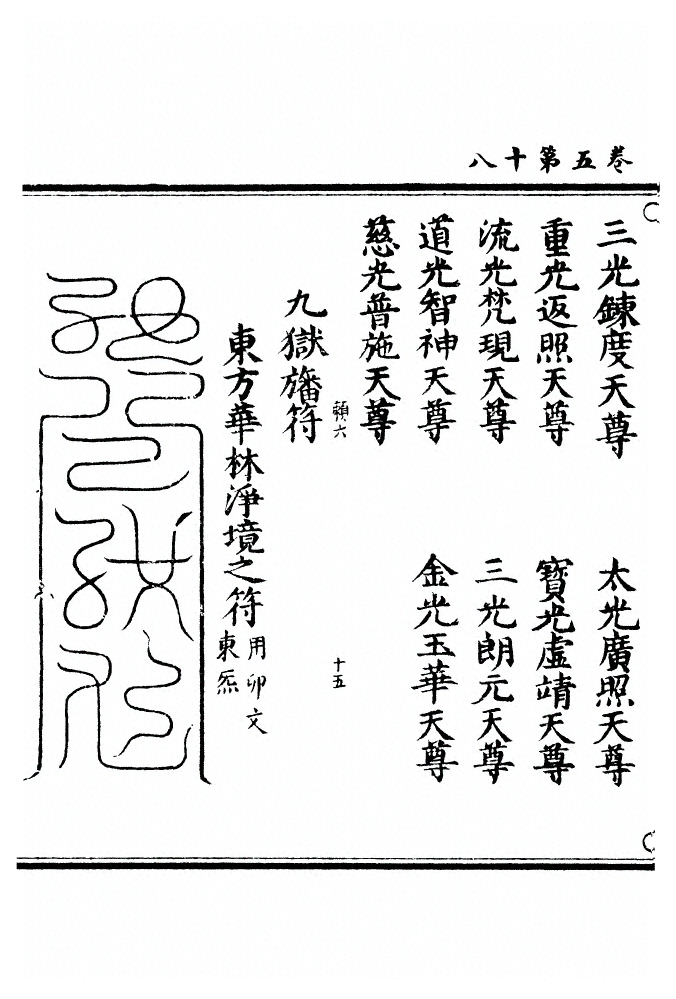 卷五第十八
三光鍊度天尊　太光廣照天尊
重光返照天尊　寶光虛靖天尊
流光梵現天尊　三光朗元天尊
道光智神天尊　金光玉華天尊
慈光普施天尊
頼六　十五
九獄旛符
東方華林淨境之符
用卯文
東炁